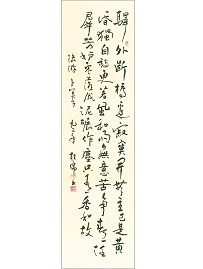 驛外断橋邊寂寞開無主已是黄
昏獨自愁更著風和雨無意苦争春一任
群芳妒零落成泥碾作塵只有香如故
陸游